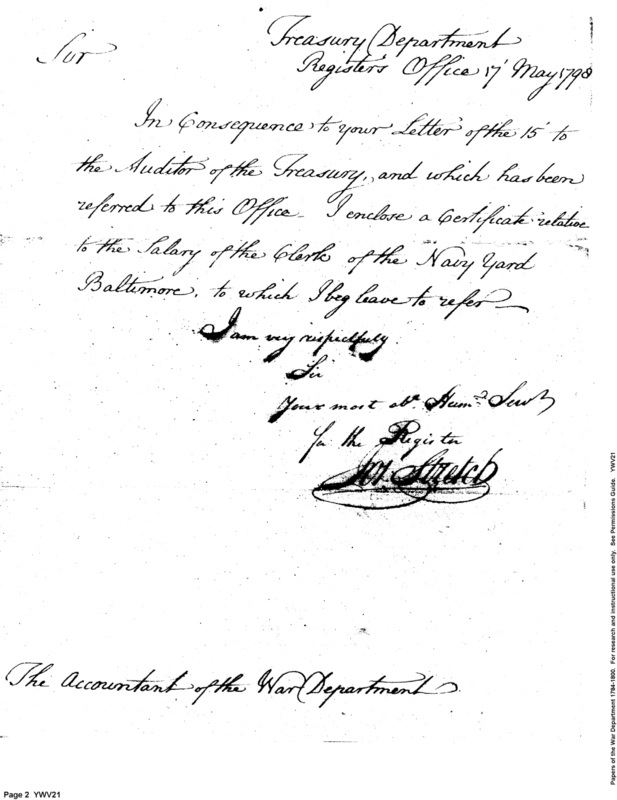 Treasury Department
Sir
Register's Office 17 May 1798
In Consequence to your Letter of the 15 to
the Auditor of the Treasury, and which has been
referred to this Office I enclose a Certificate relative
to the Salary of the Clerk of the Navy Yard
Baltimore, to which I beg leave to refer
I am very respectfully
Sir
Your most obt. Humb. Servt
for the Register
Jos. Stretch
The Accountant of the War Department
Page 2 YWV21
Papers of the War Department 1784-1800. For research and instructional use only. See Permissions Guide. YWV21